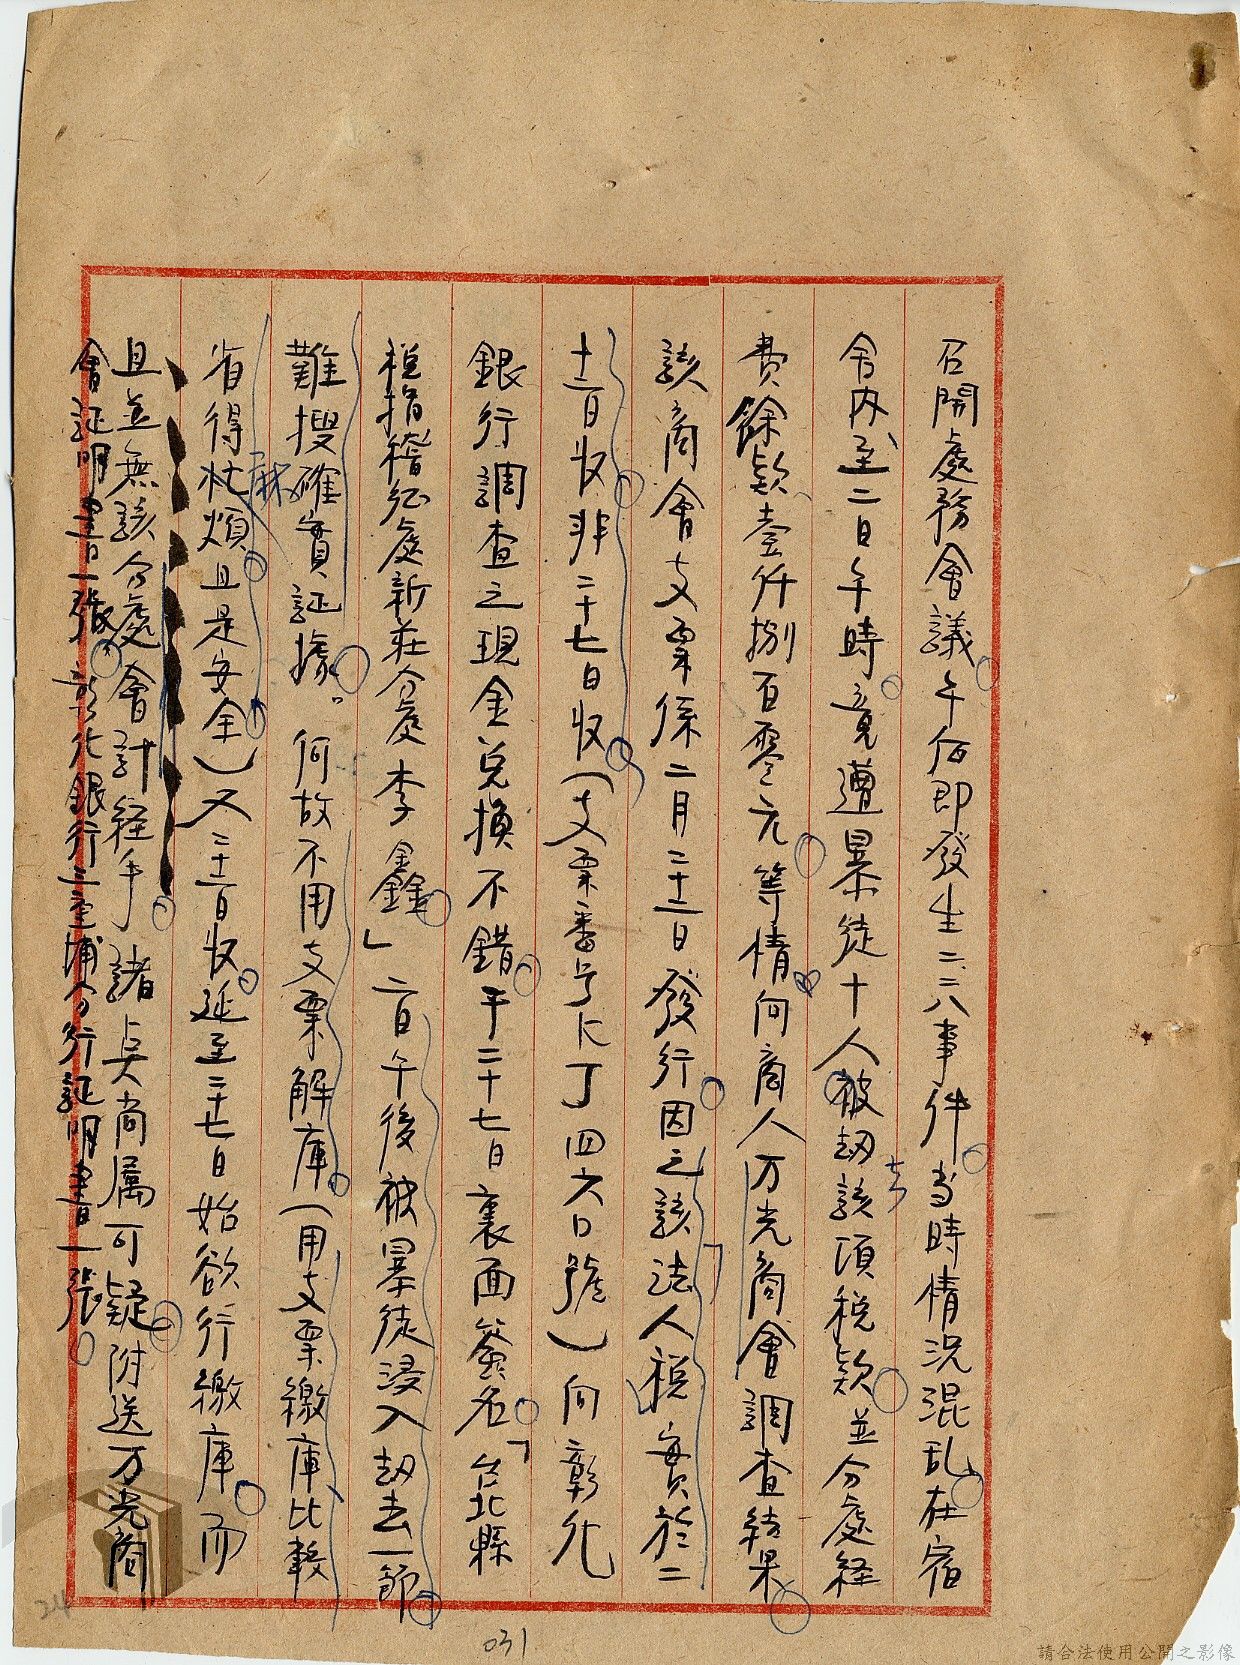 召開處務會議。午后即發生二.二八事件。当時情況混乱。在宿
舍内至二日午時。竟遭暴徒十人被劫去該項稅款。並分處経
費餘款壹仟捌百零元等情向商人万光商會調查結果。
該商會支票係二月二十二日發行。因之「該法人稅實於二
十二日收。非二十七日收。(支票番号仁丁四六口號)向彰化
銀行調查之現金兌換不錯。于二十七日裏面簽名。「台北縣
稅捐稽征處新莊分處李鑫。」二日午後被暴徒浸入劫去一節。
難搜確實証據。何故不用支票解庫。(用支票繳庫比較
省得忙麻煩。且是安全。)又二十二日收。延至二十七日始欲行繳庫。而
且並無該分處會計経手。諸点尚属可疑。附送万光商
會証明書一張。彰化銀行三重埔分行証明書一張。
24
031
請合法使用公開之影像